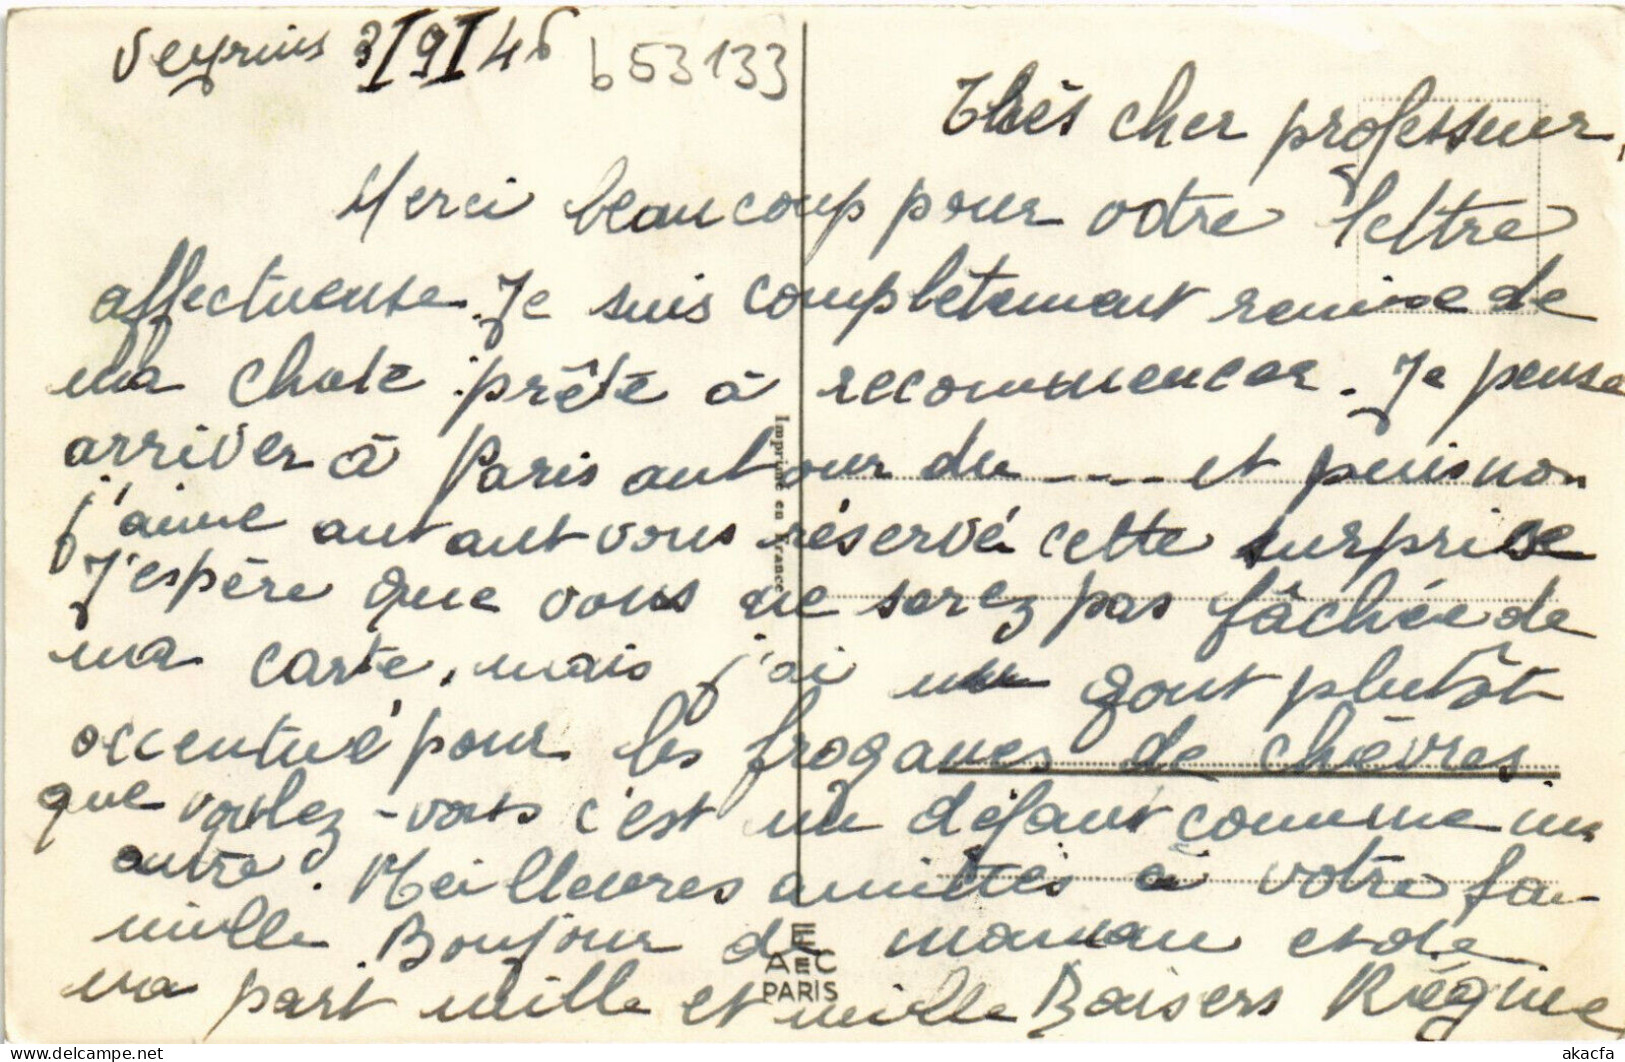 Veyrins 3/9/46 b53133
Très cher professeur,
Merci beaucoup pour votre lettre
affectueuse. Je suis complètement remise de
ma chute prête à recommencer. Je pense
arriver à Paris autour du ---- et puis non
j'aime autant vous réservé cette surprise
J'espère que vous ne serez pas fâchée de
ma carte, mais j'ai un gout plutôt
accentué pour les
de chèvres
que voulez-vous c'est un défaut comme un
autre. Meilleures amitiés à votre fa-
mille. Bonjour de maman et de
ma part mille et mille Baisers Régine
Imprimé en France
E
AEC
PARIS
akacfa